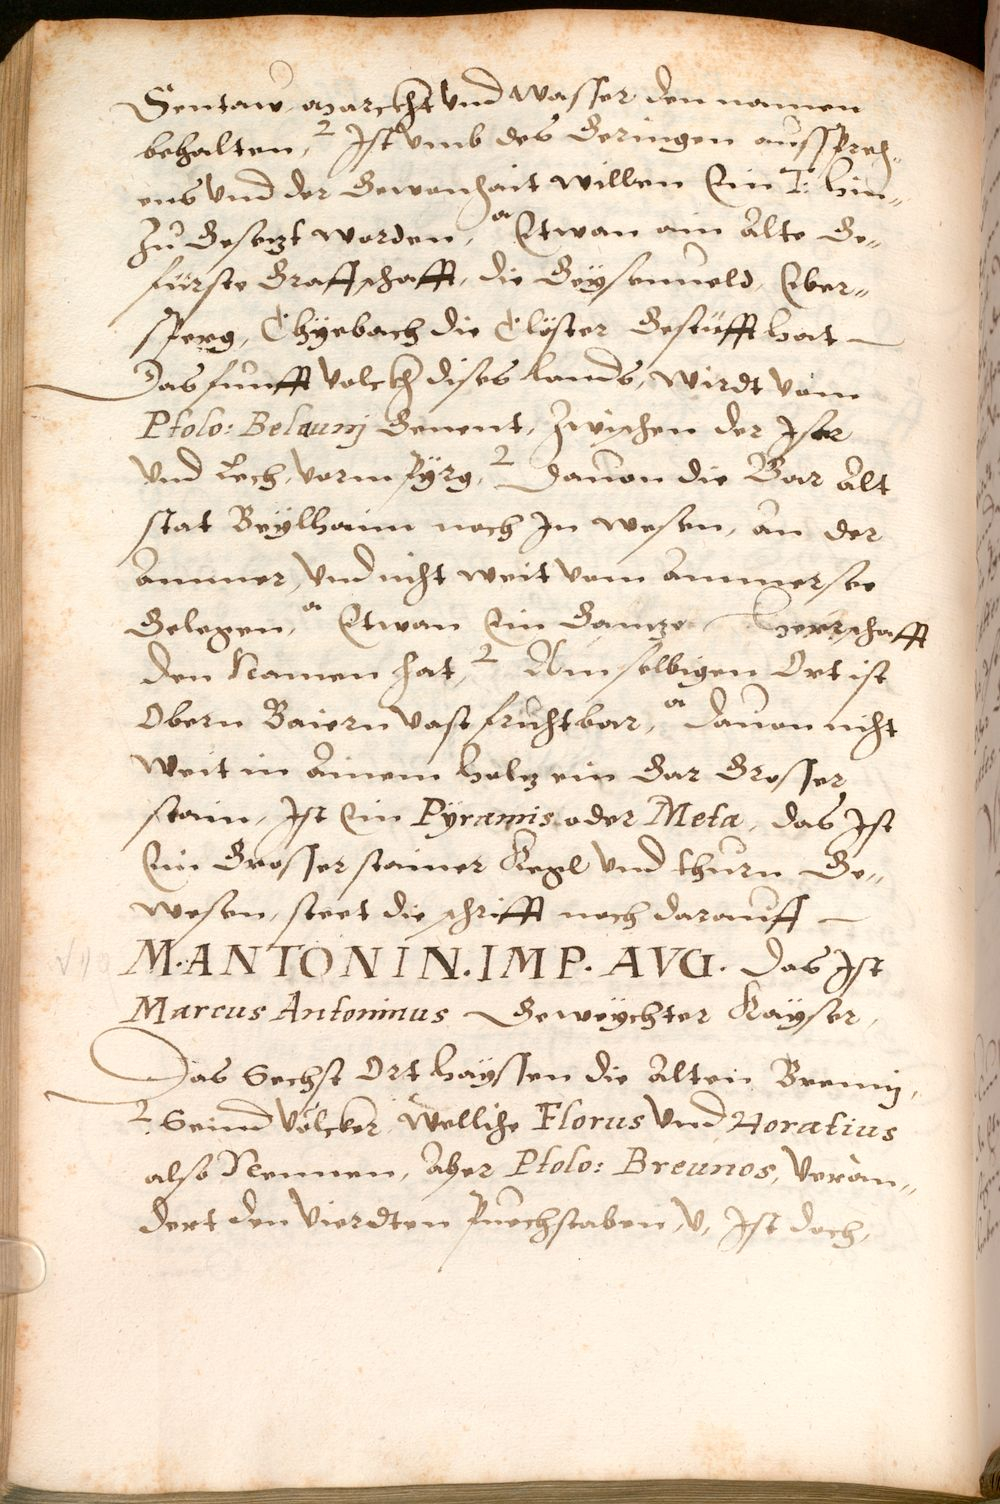 Sentaw, marckht Vnd Wasser den namen
behalten, 2 Ist Vmb des Geringen ausspreh=
ens Vnd der Gewonhait willen Ein T: hin=
Zu Gesetzt worden, a Etwan ain Alte Ge=
fürste Graffschafft, die Geysenueld, Eber=
sperg, Chyebach die Clöster Gestüfft hat
Das funfft Volckh dises lands, Wirdt Vom
Ptolo: Belauni Genent, Zwischen der Iser
Vnd Lech, Vorm Pyrg, 2 Dauon die Gar Alt
stat Beylhaim noch In wesen, an der
Ammer, Vnd nicht weit Vom Ammersee
Gelegen, a Etwan Ein Gantze Herrschafft
den Namen hat, 2 Am selbigen Ort ist
Obern Baiern Vast fruchtbar, a dauon nicht
Weit in Ainem holtz ein Gar Grosser
stain, Ist Ein Pyramis oder Meta, das Ist
Ein Grosser stainer Kegl Vnd thurn Ge=
wesen, steet die schrifft noch darauff
M. ANTONIN. IMP. AVG. Das Ist
Marcus Antoninus Geweychter Kayser,
Das Sechst Ort hayssen die Alten Brenni,
2 Seind Völcker Welliche Florus Vnd Horatius
also Nennen, Aber Ptolo: Breunos, Verän=
dert den Vierdten Puechstaben, V, Ist doch,